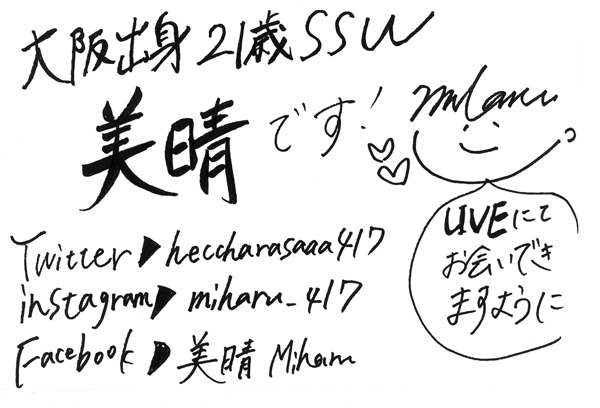 大阪出身21歳SSW
美晴です!
miharu
LIVEにて
お会いでき
ますように
Twitter▶heccharasaaa417
instagram▶miharu_417
Facebook▶美晴 Miharu